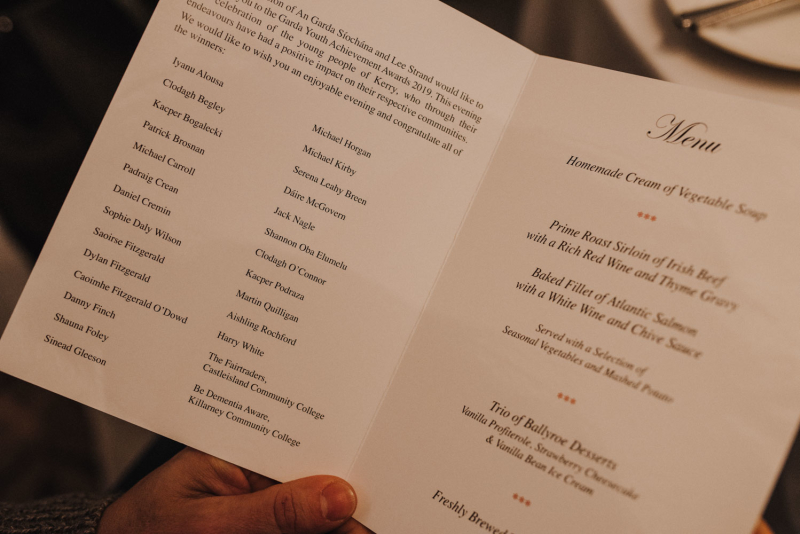 ion of An Garda Síochána and Lee Strand would like to
you to the Garda Youth Achievement Awards 2019. This evening
celebration of the young people of Kerry, who through their
endeavours have had a positive impact on their respective communities.
We would like to wish you an enjoyable evening and congratulate all of
the winners:
Iyanu Alousa
Clodagh Begley
Kacper Bogalecki
Patrick Brosnan
Michael Carroll
Padraig Crean
Daniel Cremin
Sophie Daly Wilson
Saoirse Fitzgerald
Dylan Fitzgerald
Caoimhe Fitzgerald O'Dowd
Danny Finch
Shauna Foley
Sinead Gleeson
Michael Horgan
Michael Kirby
Serena Leahy Breen
Dáire McGovern
Jack Nagle
Shannon Oba Elumelu
Clodagh O'Connor
Kacper Podraza
Martin Quilligan
Aishling Rochford
Harry White
The Fairtraders,
Castleisland Community College
Be Dementia Aware,
Killarney Community College
Menu
Homemade Cream of Vegetable Soup
Prime Roast Sirloin of Irish Beef
with a Rich Red Wine and Thyme Gravy
Baked Fillet of Atlantic Salmon
with a White Wine and Chive Sauce
Served with a Selection of
Seasonal Vegetables and Mashed Potato
Trio of Ballyroe Desserts
Vanilla Profiterole, Strawberry Cheesecake
& Vanilla Bean Ice Cream
Freshly Brewed